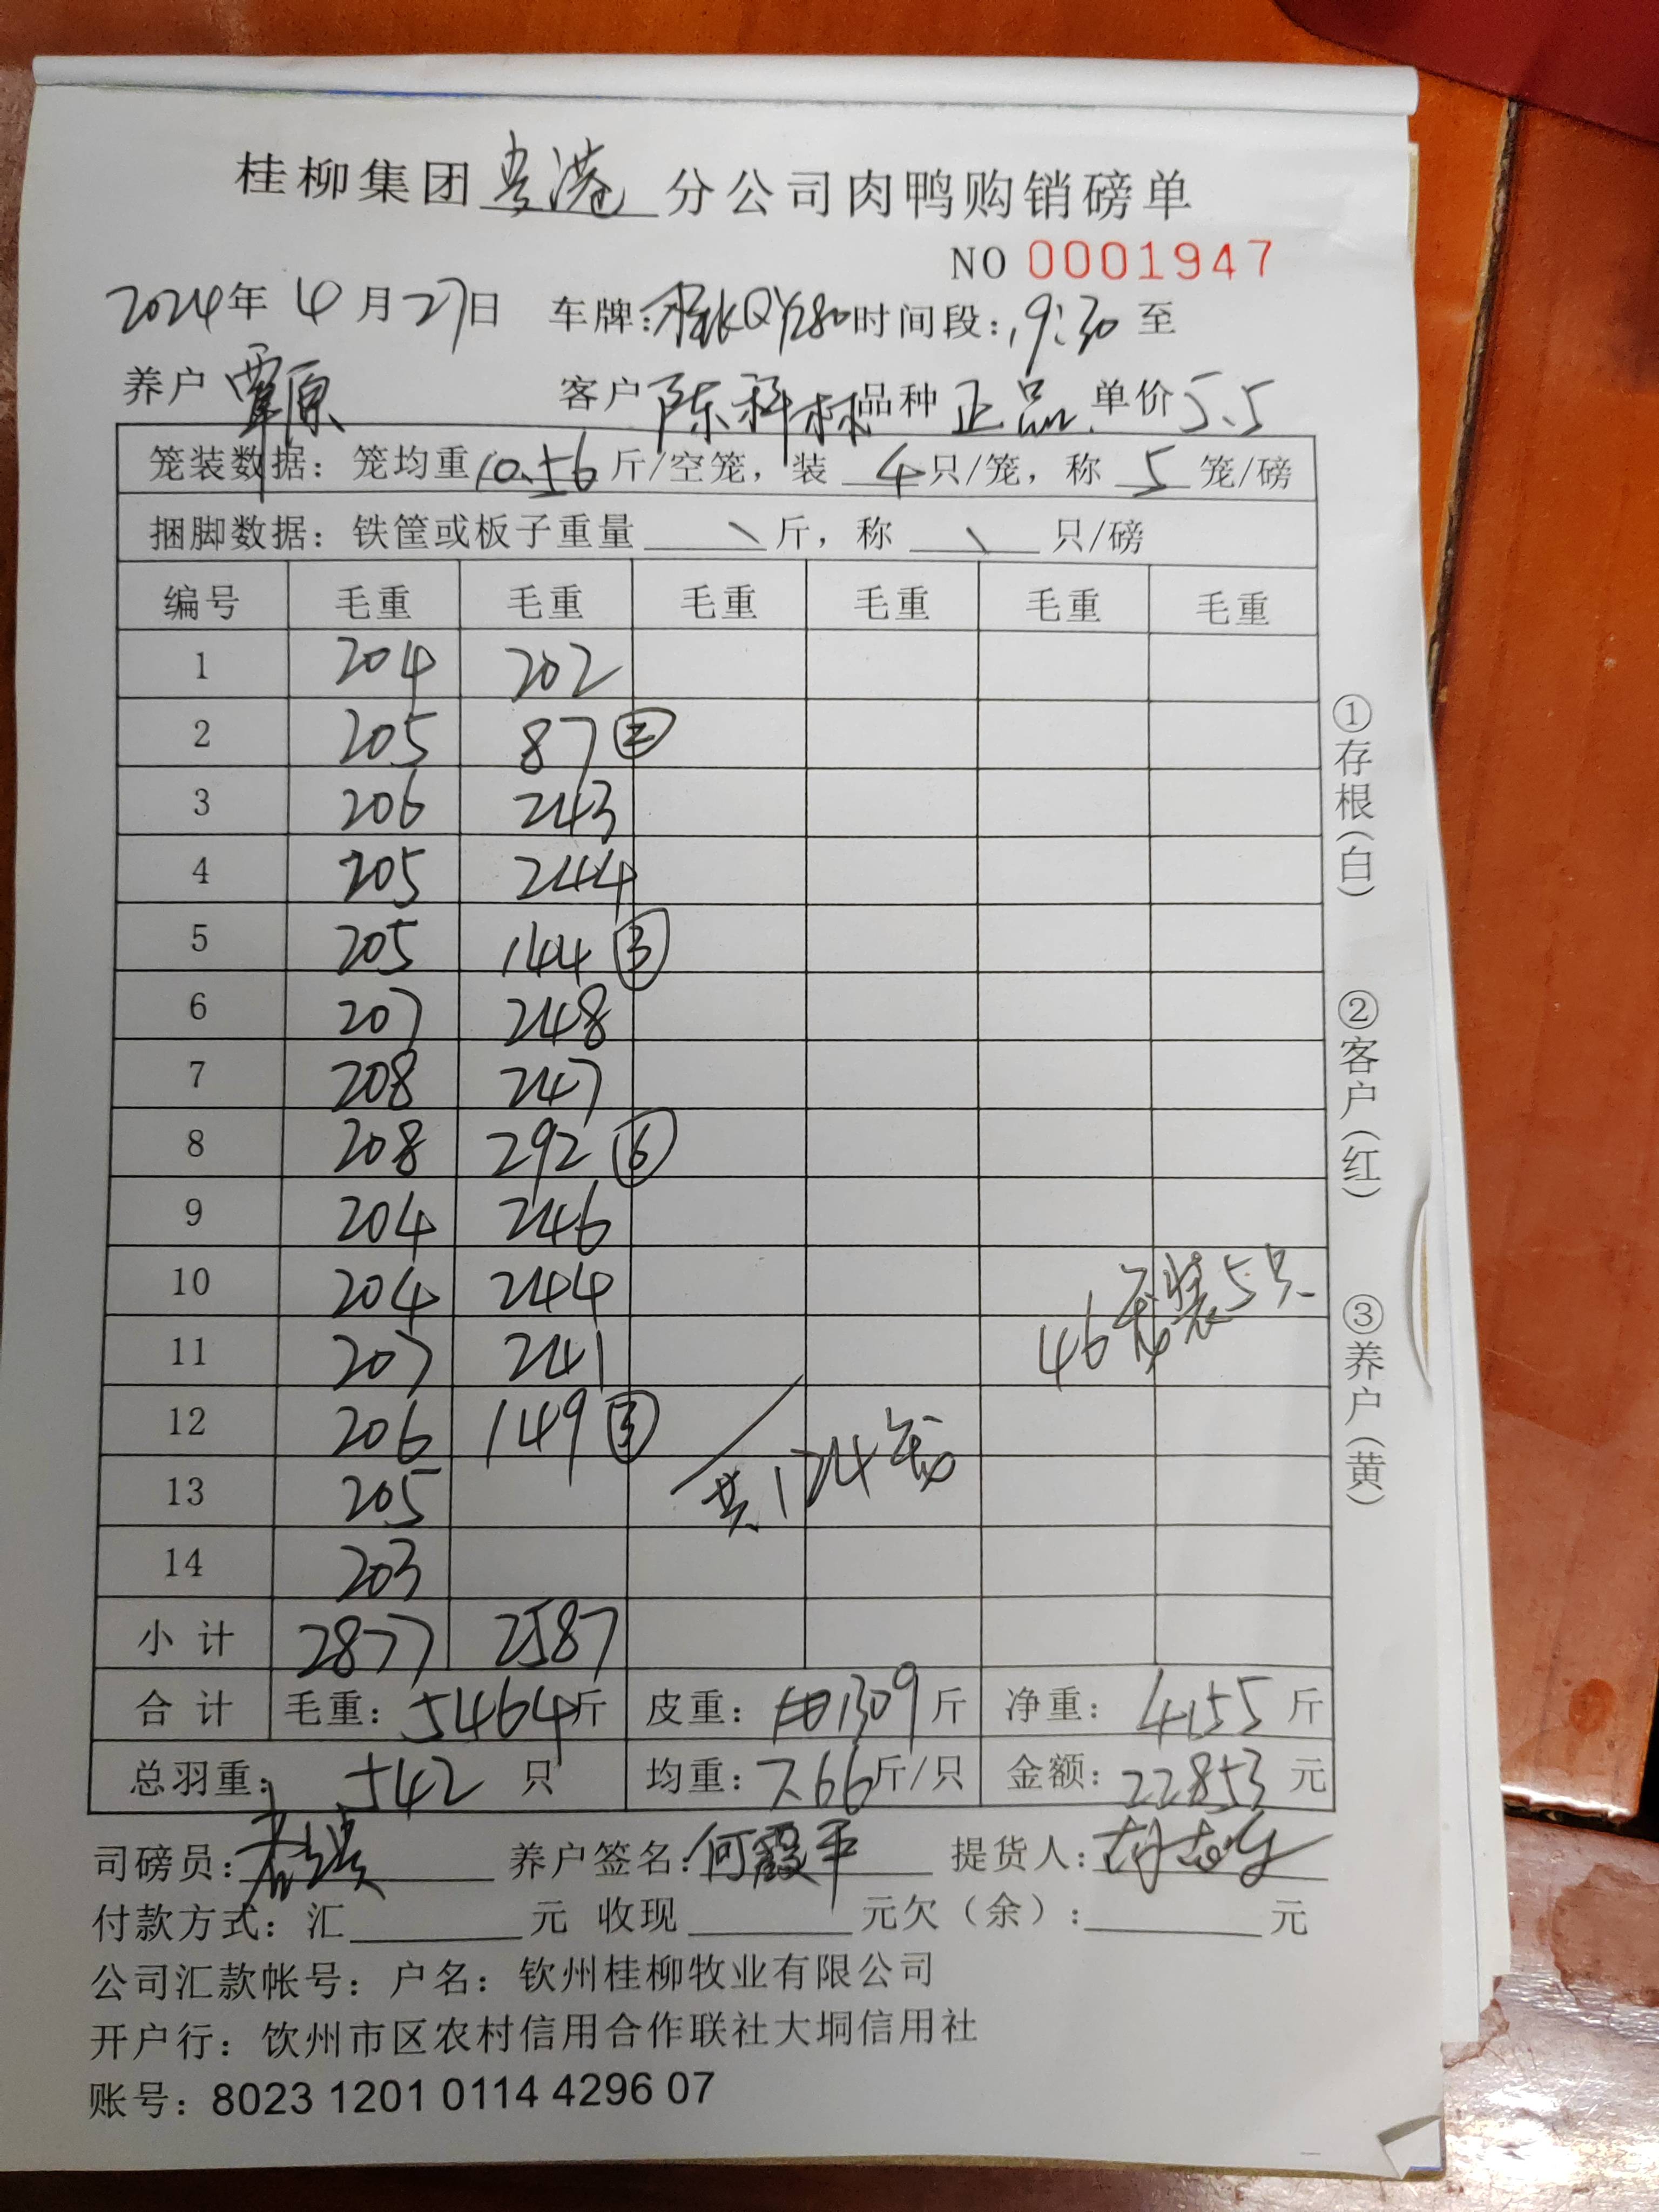 桂柳集团贵港分公司肉鸭购销磅单
NO 0001947
2024年 4月27日 车牌: QY280 时间段: 19:30 至
养户 覃原 客户 陈科林 品种 正品 单价 5.5
笼装数据: 笼均重 10.56 斤/空笼, 装 4 只/笼, 称 5 笼/磅
捆脚数据: 铁筐或板子重量 \ 斤, 称 \ 只/磅
编号 毛重 毛重 毛重 毛重 毛重 毛重
1 204 202
2 205 87 ②
3 206 243
4 205 244
5 205 144 ③
6 207 248
7 208 247
8 208 292 ⑥
9 204 246
10 204 244
11 207 241
46笼装5只
12 206 149 ③
13 205
共124笼
14 203
小计 2877 2587
合计 毛重: 5464斤 皮重: 1309斤 净重: 4155斤
总羽重: 542 只 均重: 7.66斤/只 金额: 22853 元
司磅员: 养户签名: 何霞平 提货人:
付款方式: 汇 元 收现 元欠(余): 元
公司汇款帐号: 户名: 钦州桂柳牧业有限公司
开户行: 饮州市区农村信用合作联社大垌信用社
账号: 8023 1201 0114 4296 07
①存根(白)
②客户(红)
③养户(黄)